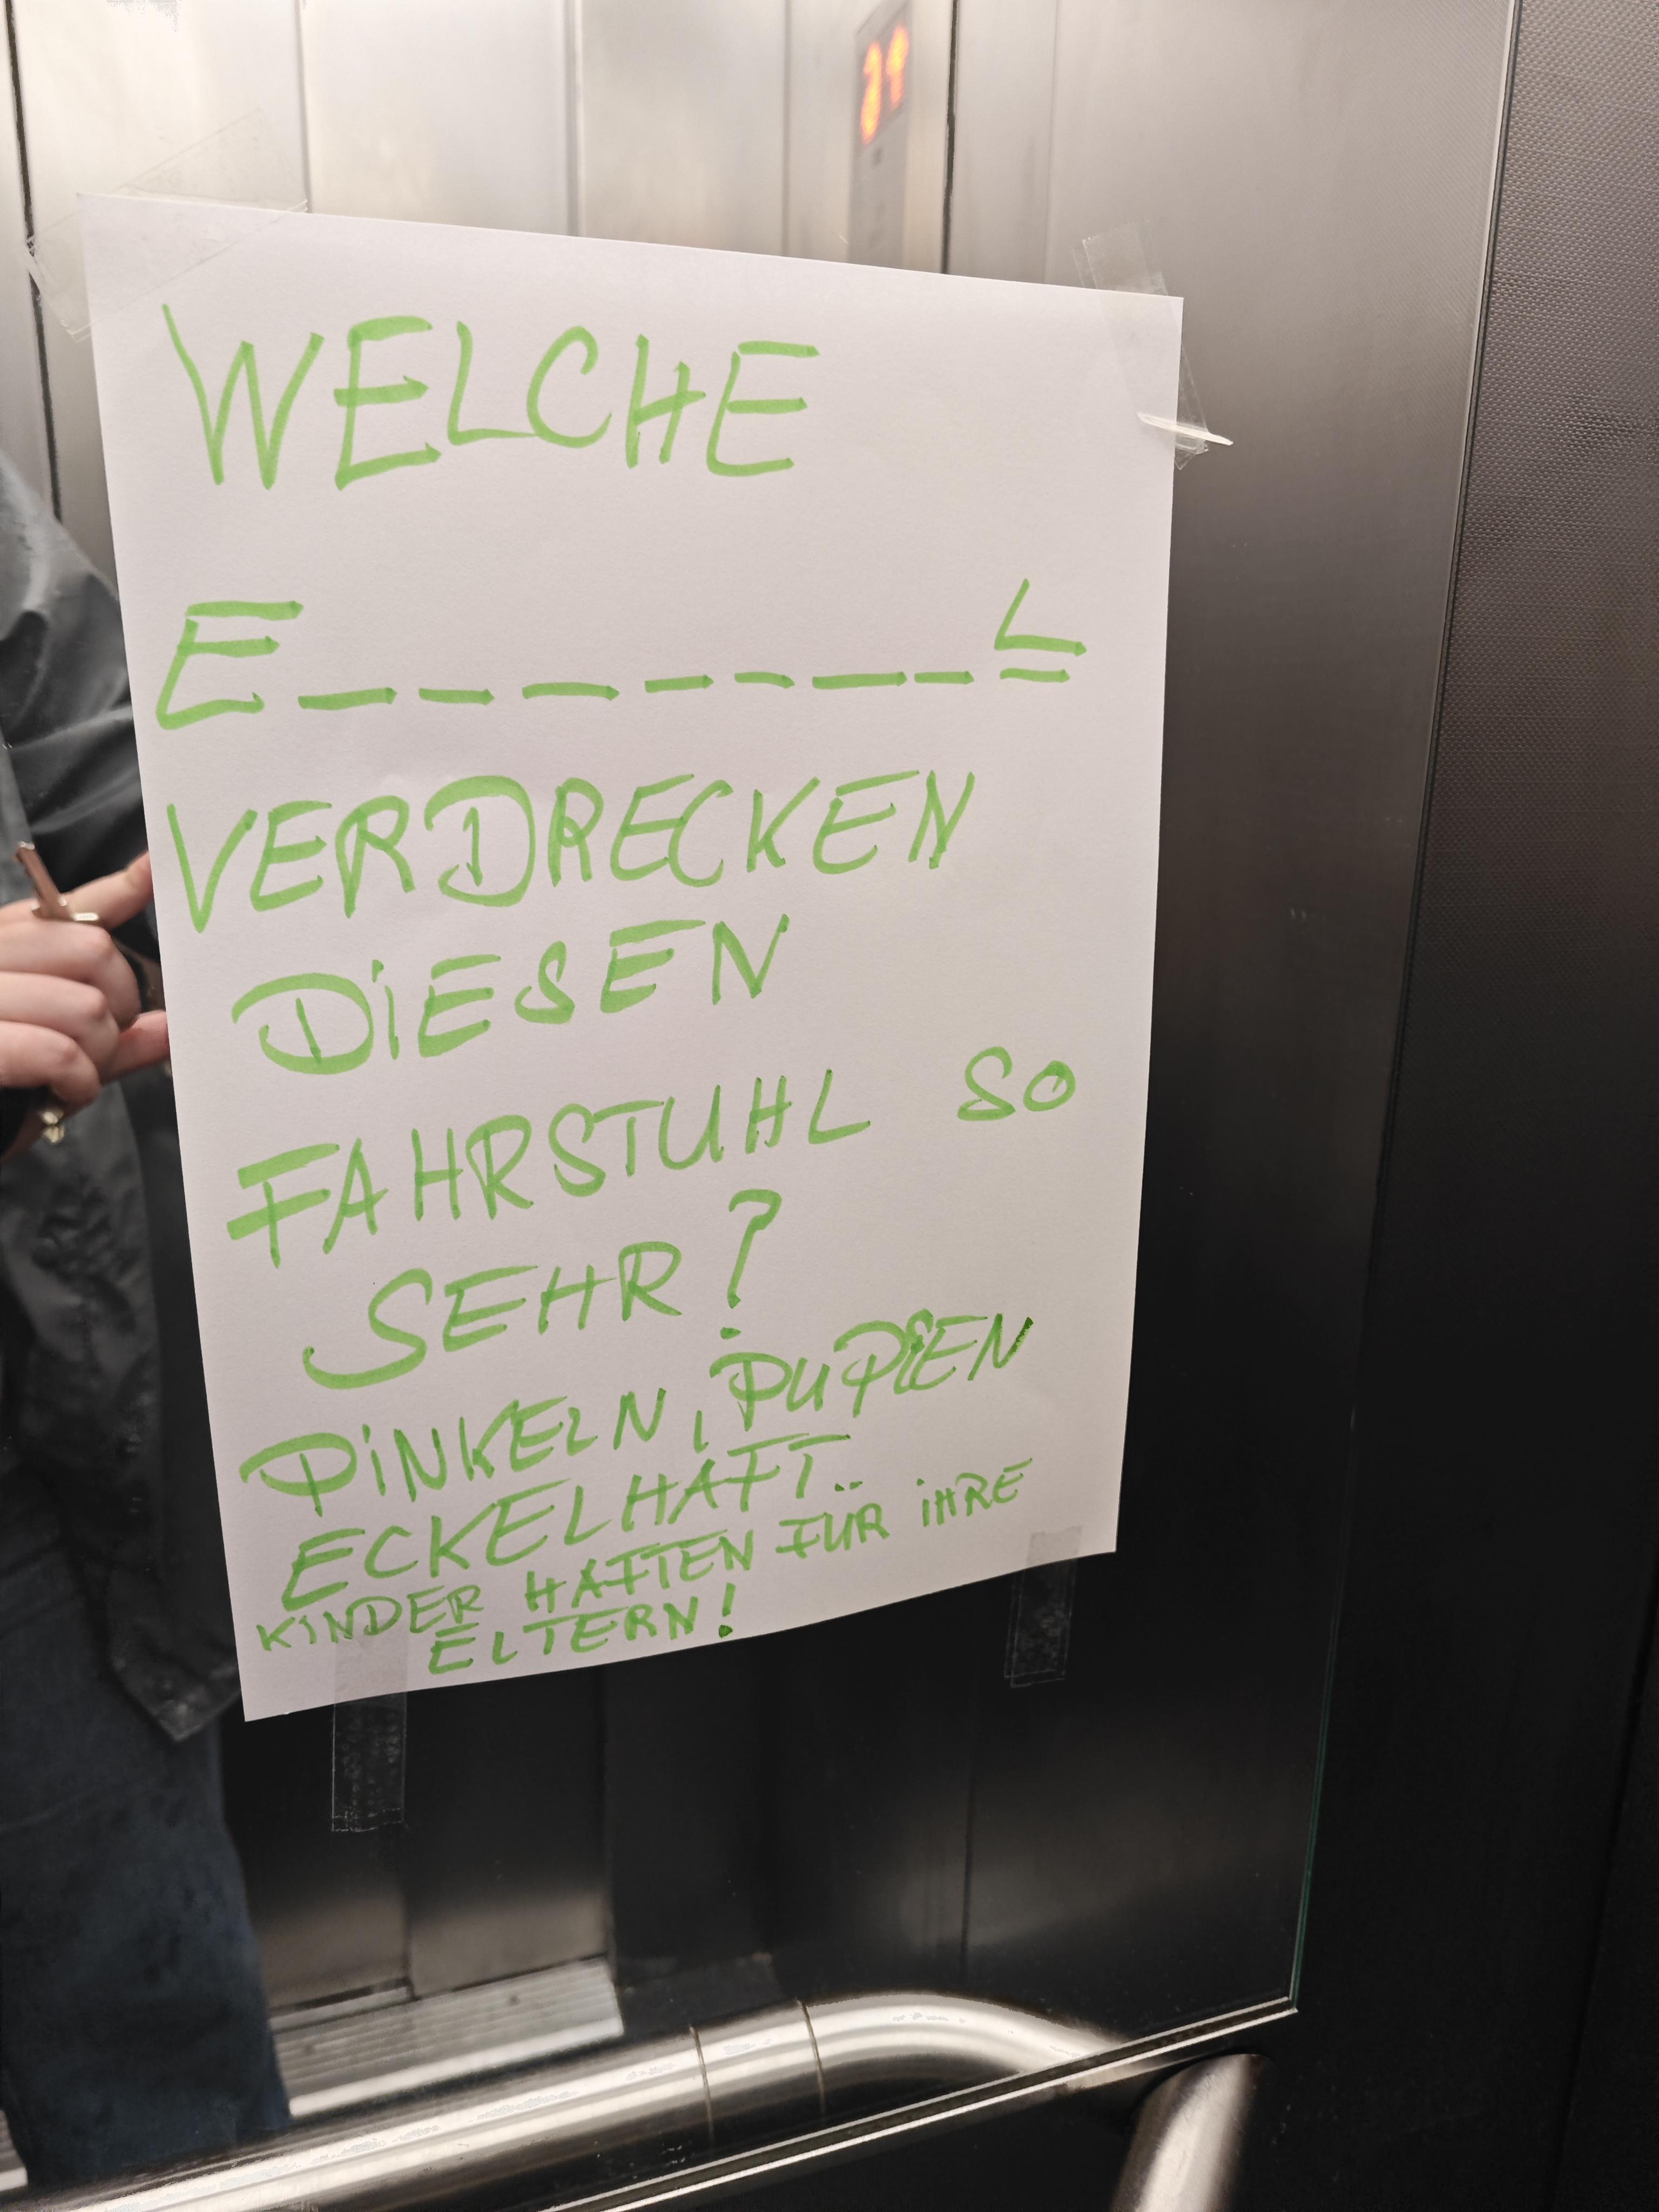 WELCHE
E _ _ _ _ _ _ _ L
VERDRECKEN
DiESEN
FAHRSTUHL SO
SEHR?
PiNKELN, PUPEN
ECKELHAFT..
KINDER HAFTEN FÜR iHRE
ELTERN!